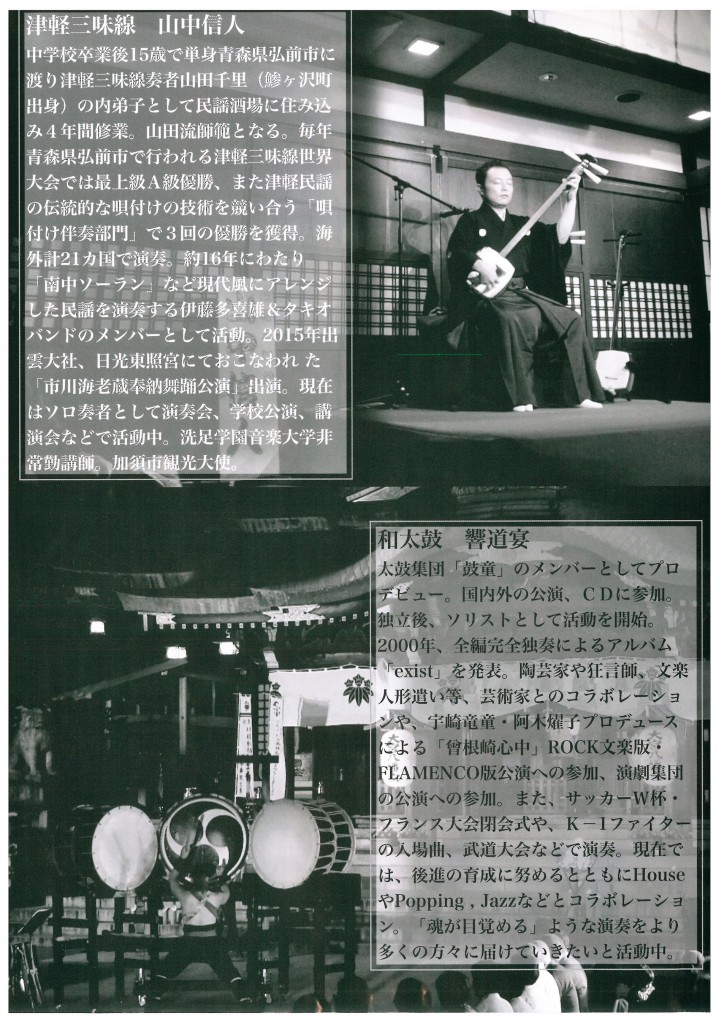 津軽三味線　山中信人
中学校卒業後15歳で単身青森県弘前市に
渡り津軽三味線奏者山田千里（鯵ヶ沢町
出身）の内弟子として民謡酒場に住み込
み４年間修業。山田流師範となる。毎年
青森県弘前市で行われる津軽三味線世界
大会では最上級Ａ級優勝、また津軽民謡
の伝統的な唄付けの技術を競い合う「唄
付け伴奏部門」で３回の優勝を獲得。海
外計21ヵ国で演奏。約16年にわたり
「南中ソーラン」など現代風にアレンジ
した民謡を演奏する伊藤多喜雄＆タキオ
バンドのメンバーとして活動。2015年出
雲大社、日光東照宮にておこなわれ た
「市川海老蔵奉納舞踊公演」出演。現在
はソロ奏者として演奏会、学校公演、講
演会などで活動中。洗足学園音楽大学非
常勤講師。加須市観光大使。
和太鼓　響道宴
太鼓集団「鼓童」のメンバーとしてプロ
デビュー。国内外の公演、ＣＤに参加。
独立後、ソリストとして活動を開始。
2000年、全編完全独奏によるアルバム
「exist」を発表。陶芸家や狂言師、文楽
人形遣い等、芸術家とのコラボレーショ
ンや、宇崎竜童・阿木燿子プロデュース
による「曾根崎心中」ROCK文楽版・
FLAMENCO版公演への参加、演劇集団
の公演への参加。また、サッカーW杯・
フランス大会閉会式や、Ｋ－1ファイター
の入場曲、武道大会などで演奏。現在で
は、後進の育成に努めるとともにHouse
やPopping , Jazzなどとコラボレーショ
ン。「魂が目覚める」ような演奏をより
多くの方々に届けていきたいと活動中。